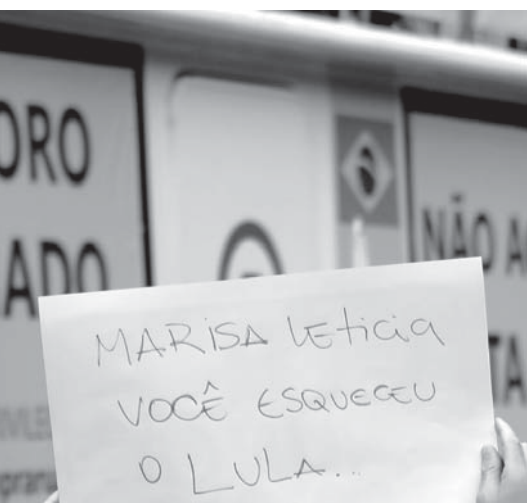 ORO
ADO
NÃO A
TA
MARISA LEticia
VOCÊ ESQUECEU
O LULA...